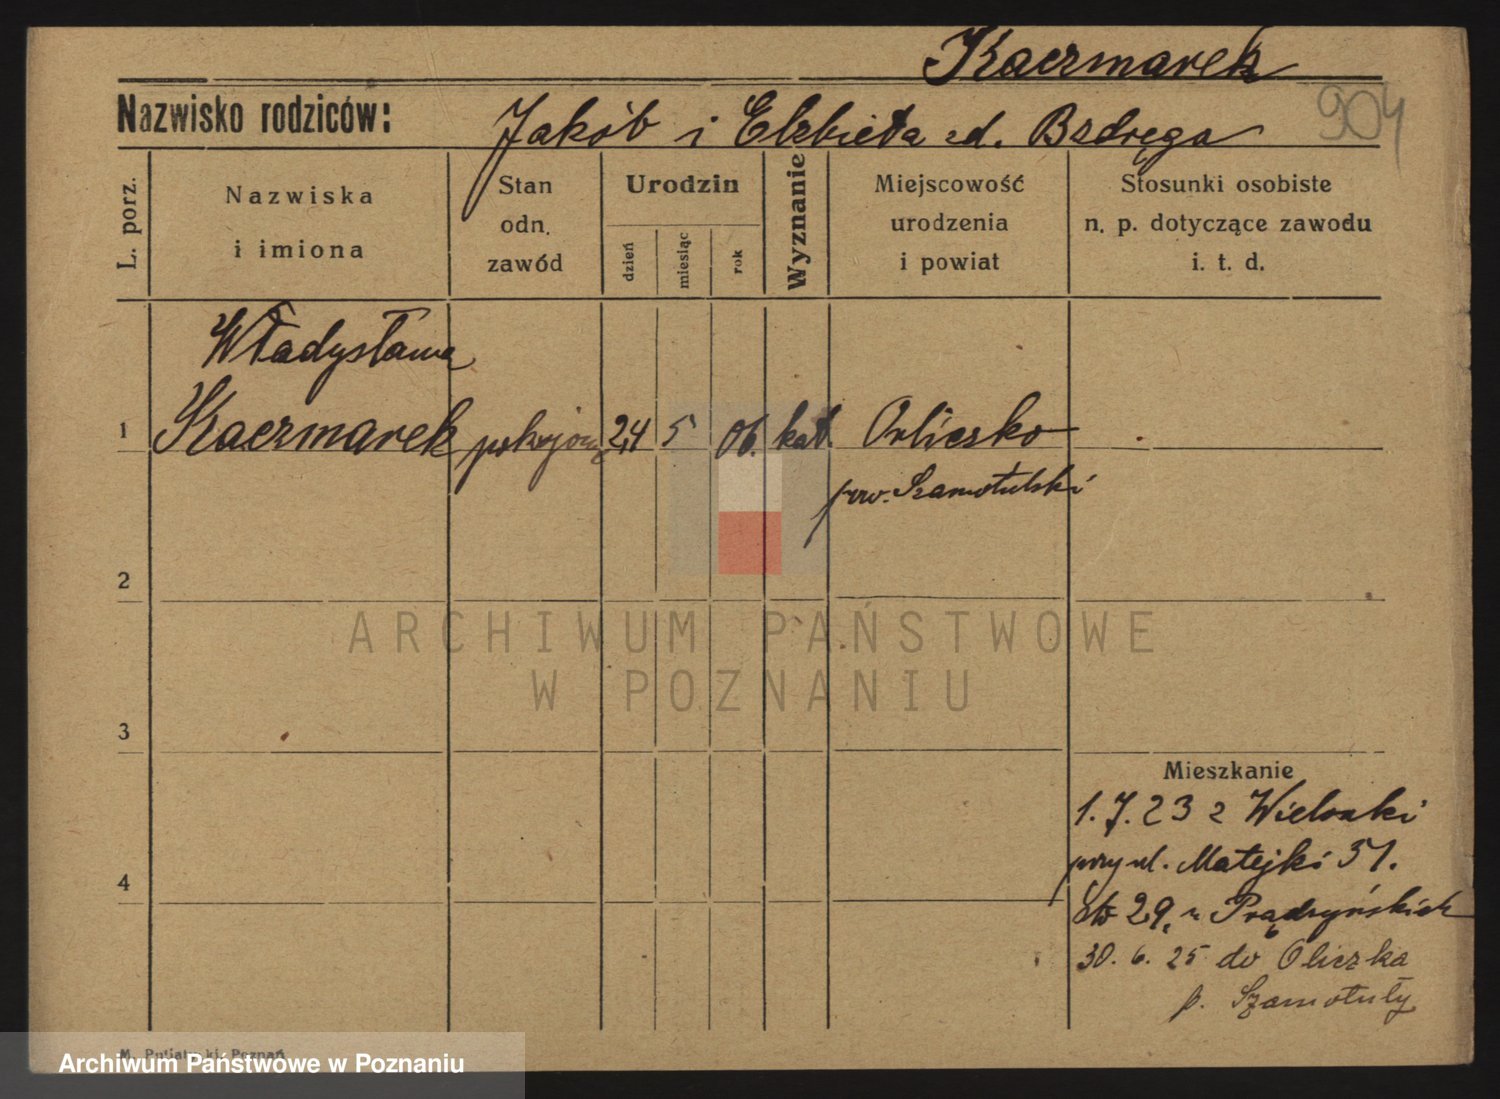 Kaczmarek
904
Nazwisko rodziców: Jakób i Elżbieta zd. Bzdręga
L. porz.
Nazwiska i imiona
Stan odn. zawód
Urodzin
dzień
miesiąc
rok
Wyznanie
Miejscowość urodzenia i powiat
Stosunki osobiste n. p. dotyczące zawodu i. t. d.
Władysława
1 Kaczmarek pokojowa 24 5 06. kat. Orliczko
pow. Szamotulski
2
ARCHIWUM PAŃSTWOWE
W POZNANIU
3
Mieszkanie
1.7.23 z
przy ul. Matejki 51.
4
29, u Prądzyńskich
30.6.25 do Oliczka
p. Szamotuły
Poznań
Archiwum Państwowe w Poznaniu